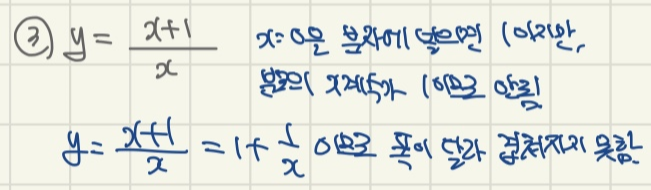 ③ y = x+1/x x=0을 분자에 넣으면 1이지만,
분모의 x계수가 1이므로 안됨
y = x+1/x = 1 + 1/x 이므로 폭이 달라 겹쳐지지 못함.